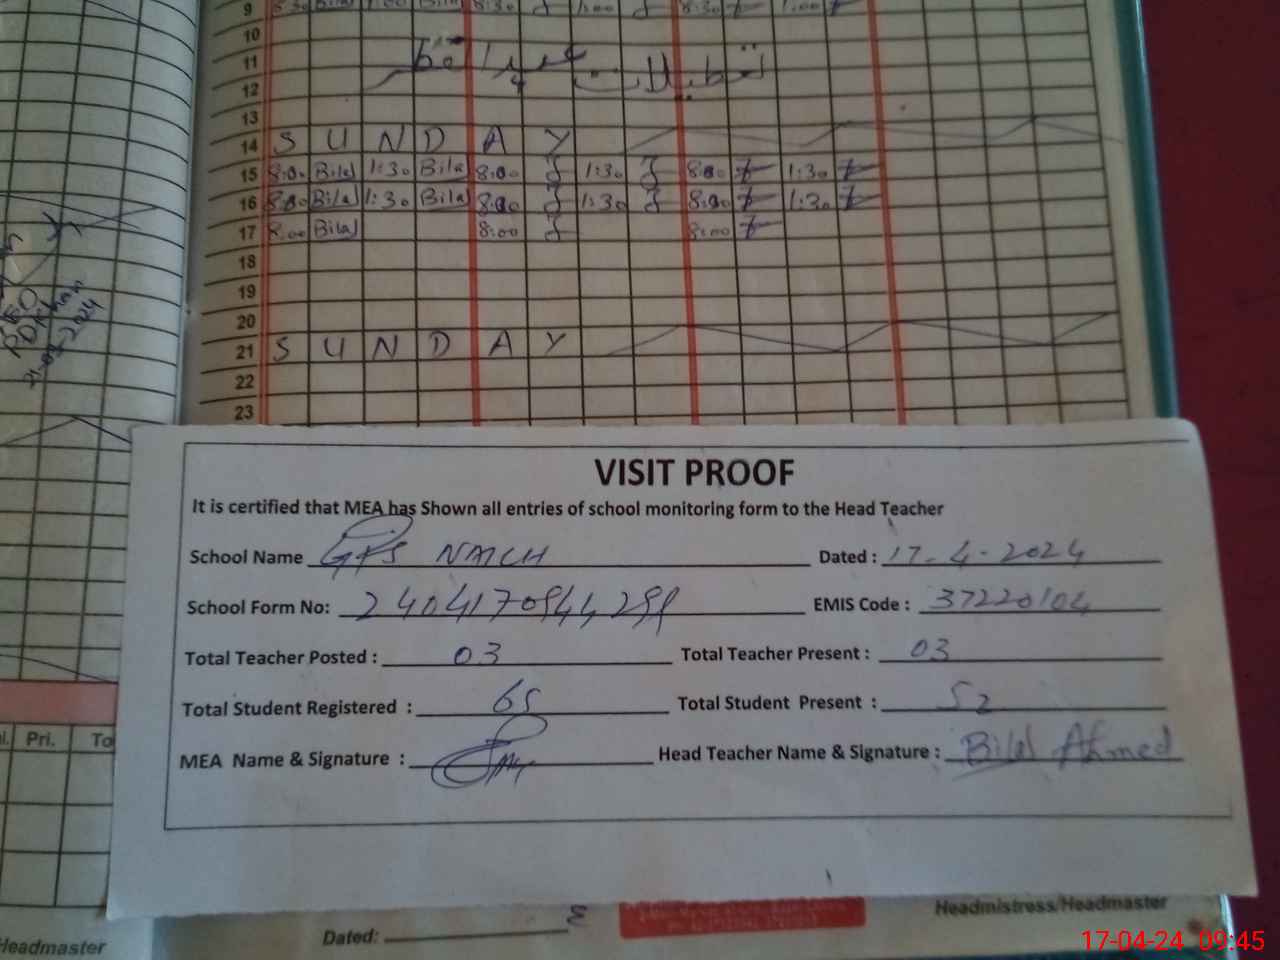 9 8:30 Bilal 1:00 Bilal 8:30 1:00 8:30 1:00
10
11 تعطیلات عید الفطر
12
13
14 S U N D A Y
15 8:00 Bilal 1:30 Bilal 8:00 1:30 8:00 1:30
16 8:00 Bilal 1:30 Bilal 8:00 1:30 8:00 1:30
17 8:00 Bilal 8:00 8:00
18
19
20
21 S U N D A Y
22
23
VISIT PROOF
It is certified that MEA has Shown all entries of school monitoring form to the Head Teacher
School Name GPS NATCH Dated : 17-4-2024
School Form No: EMIS Code : 37220104
Total Teacher Posted : 03 Total Teacher Present : 03
Total Student Registered : 65 Total Student Present : 52
MEA Name & Signature : Head Teacher Name & Signature : Bilal Ahmed
Pri. To
Headmaster
Dated:
Headmistress/Headmaster
17-04-24 09:45